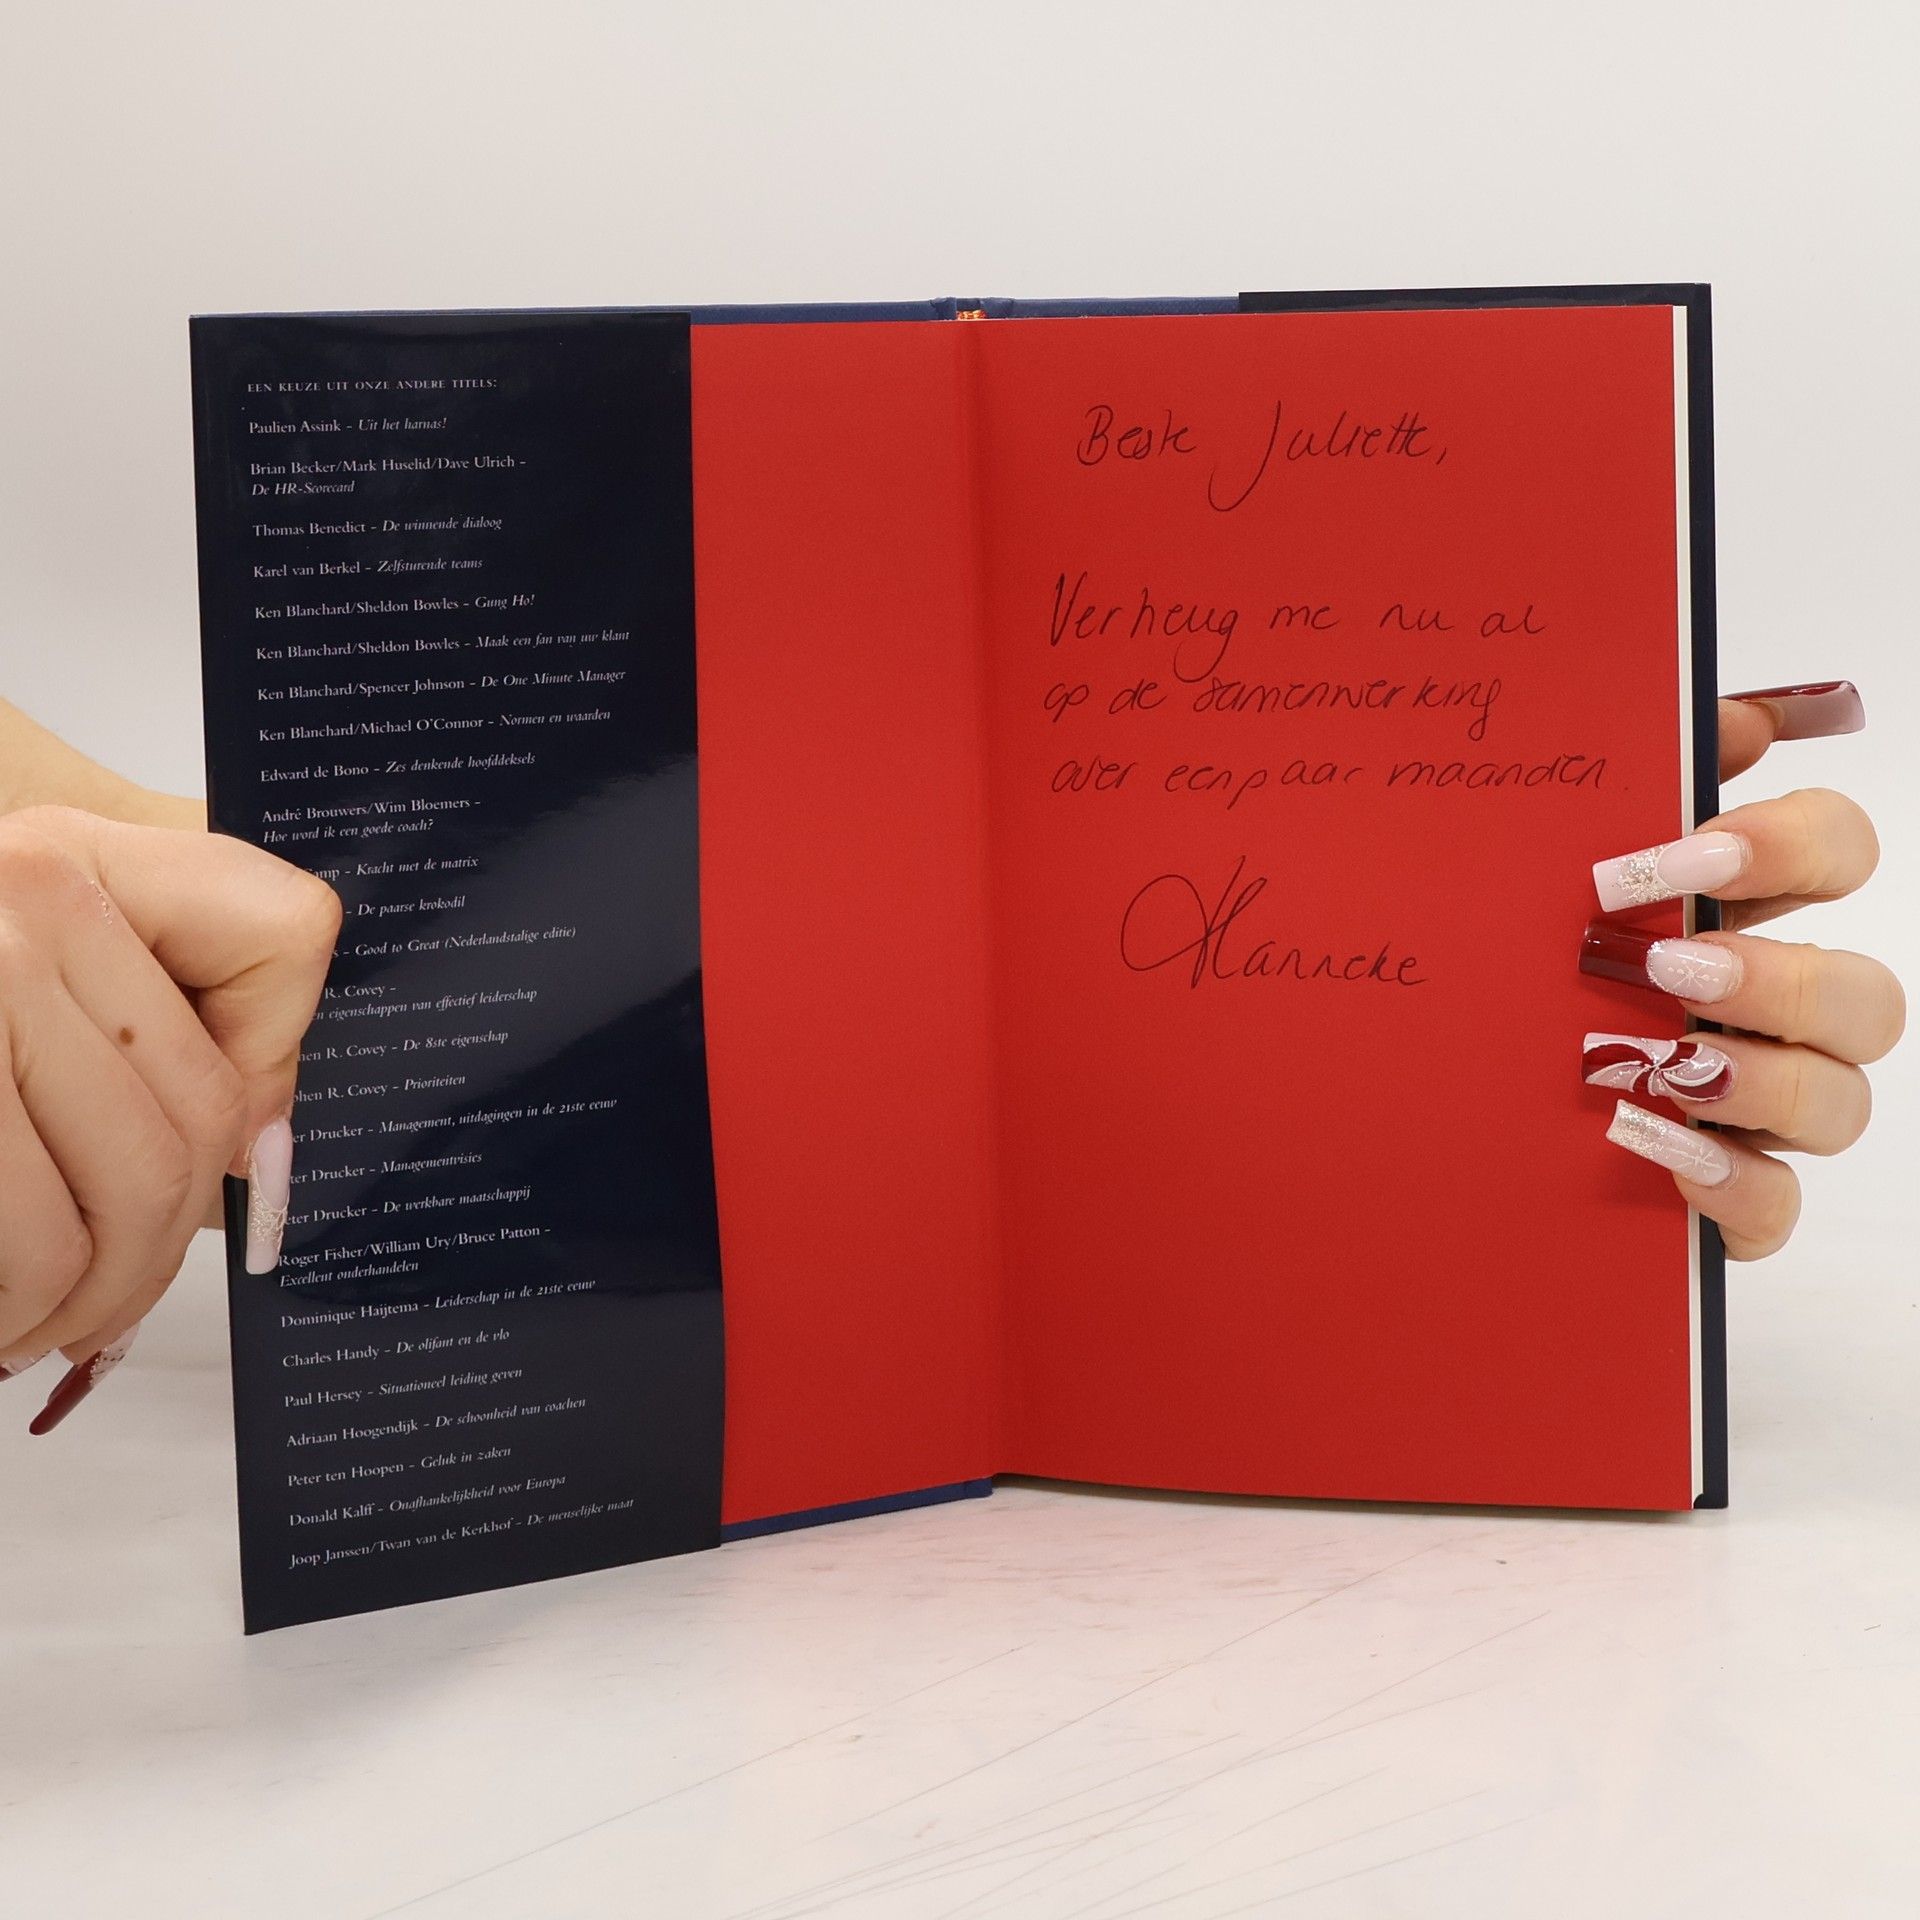 EEN KEUZE UIT ONZE ANDERE TITELS:
Paulien Assink - Uit het harnas!
Brian Becker/Mark Huselid/Dave Ulrich -
De HR-Scorecard
Thomas Benedict - De winnende dialoog
Karel van Berkel - Zelfsturende teams
Ken Blanchard/Sheldon Bowles - Gung Ho!
Ken Blanchard/Sheldon Bowles - Maak een fan van uw klant
Ken Blanchard/Spencer Johnson - De One Minute Manager
Ken Blanchard/Michael O'Connor - Normen en waarden
Edward de Bono - Zes denkende hoofddeksels
André Brouwers/Wim Bloemers -
Hoe word ik een goede coach?
amp - Kracht met de matrix
- De paarse krokodil
s - Good to Great (Nederlandstalige editie)
R. Covey -
en eigenschappen van effectief leiderschap
hen R. Covey - De 8ste eigenschap
phen R. Covey - Prioriteiten
er Drucker - Management, uitdagingen in de 21ste eeuw
ter Drucker - Managementvisies
eter Drucker - De werkbare maatschappij
Roger Fisher/William Ury/Bruce Patton -
Excellent onderhandelen
Dominique Haijtema - Leiderschap in de 21ste eeuw
Charles Handy - De olifant en de vlo
Paul Hersey - Situationeel leiding geven
Adriaan Hoogendijk - De schoonheid van coachen
Peter ten Hoopen - Geluk in zaken
Donald Kalff - Onafhankelijkheid voor Europa
Joop Janssen/Twan van de Kerkhof - De menselijke maat
Beste Juliette,
Verheug me nu al
op de samenwerking
over een paar maanden.
Hanneke